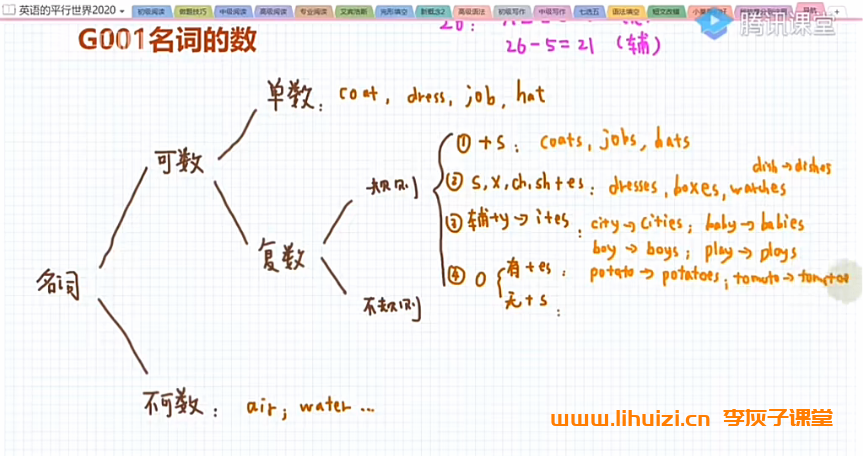 英语的平行世界2020
初级阅读 做题技巧 中级阅读 高级阅读 专业阅读 艾宾浩斯 完形填空 新概念2 高级语法 初级写作 中级写作 七选五 语法填空 短文改错
腾讯课堂
26-5=21 (辅)
G001名词的数
单数: coat, dress, job, hat
可数
① +s: coats, jobs, hats
dish→dishes
规则
② s,x,ch,sh+es: dresses, boxes, watches
③ 辅+y→i+es: city→cities; baby→babies
boy→boys; play→plays
复数
④ o 有+es: potato→potatoes; tomato→tomatoes
无+s:
名词
不规则
不可数: air; water...
www.lihuizi.cn 李灰子课堂